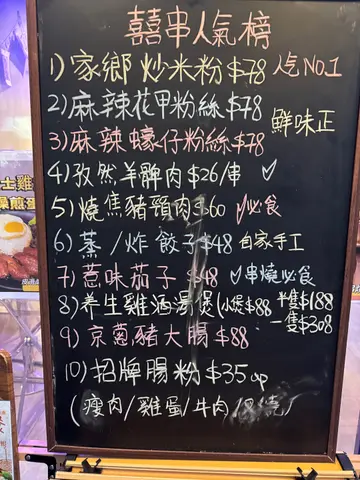 囍串人氣榜
1) 家鄉炒米粉 $78 人气 No.1
2) 麻辣花甲粉絲 $78
鮮味正
3) 麻辣蠔仔粉絲 $78
4) 孜然羊髀肉 $26/串 ✓
5) 燒焦豬頸肉 $60 必食
6) 蒸/炸餃子 $48 自家手工
7) 惹味茄子 $48 串燒必食
8) 养生雞酒湯煲 (小煲$88 半隻$188
一隻$308
9) 京蔥豬大腸 $88
10) 招牌腸粉 $35 up
(瘦肉/雞蛋/牛肉/叉燒)
士雞